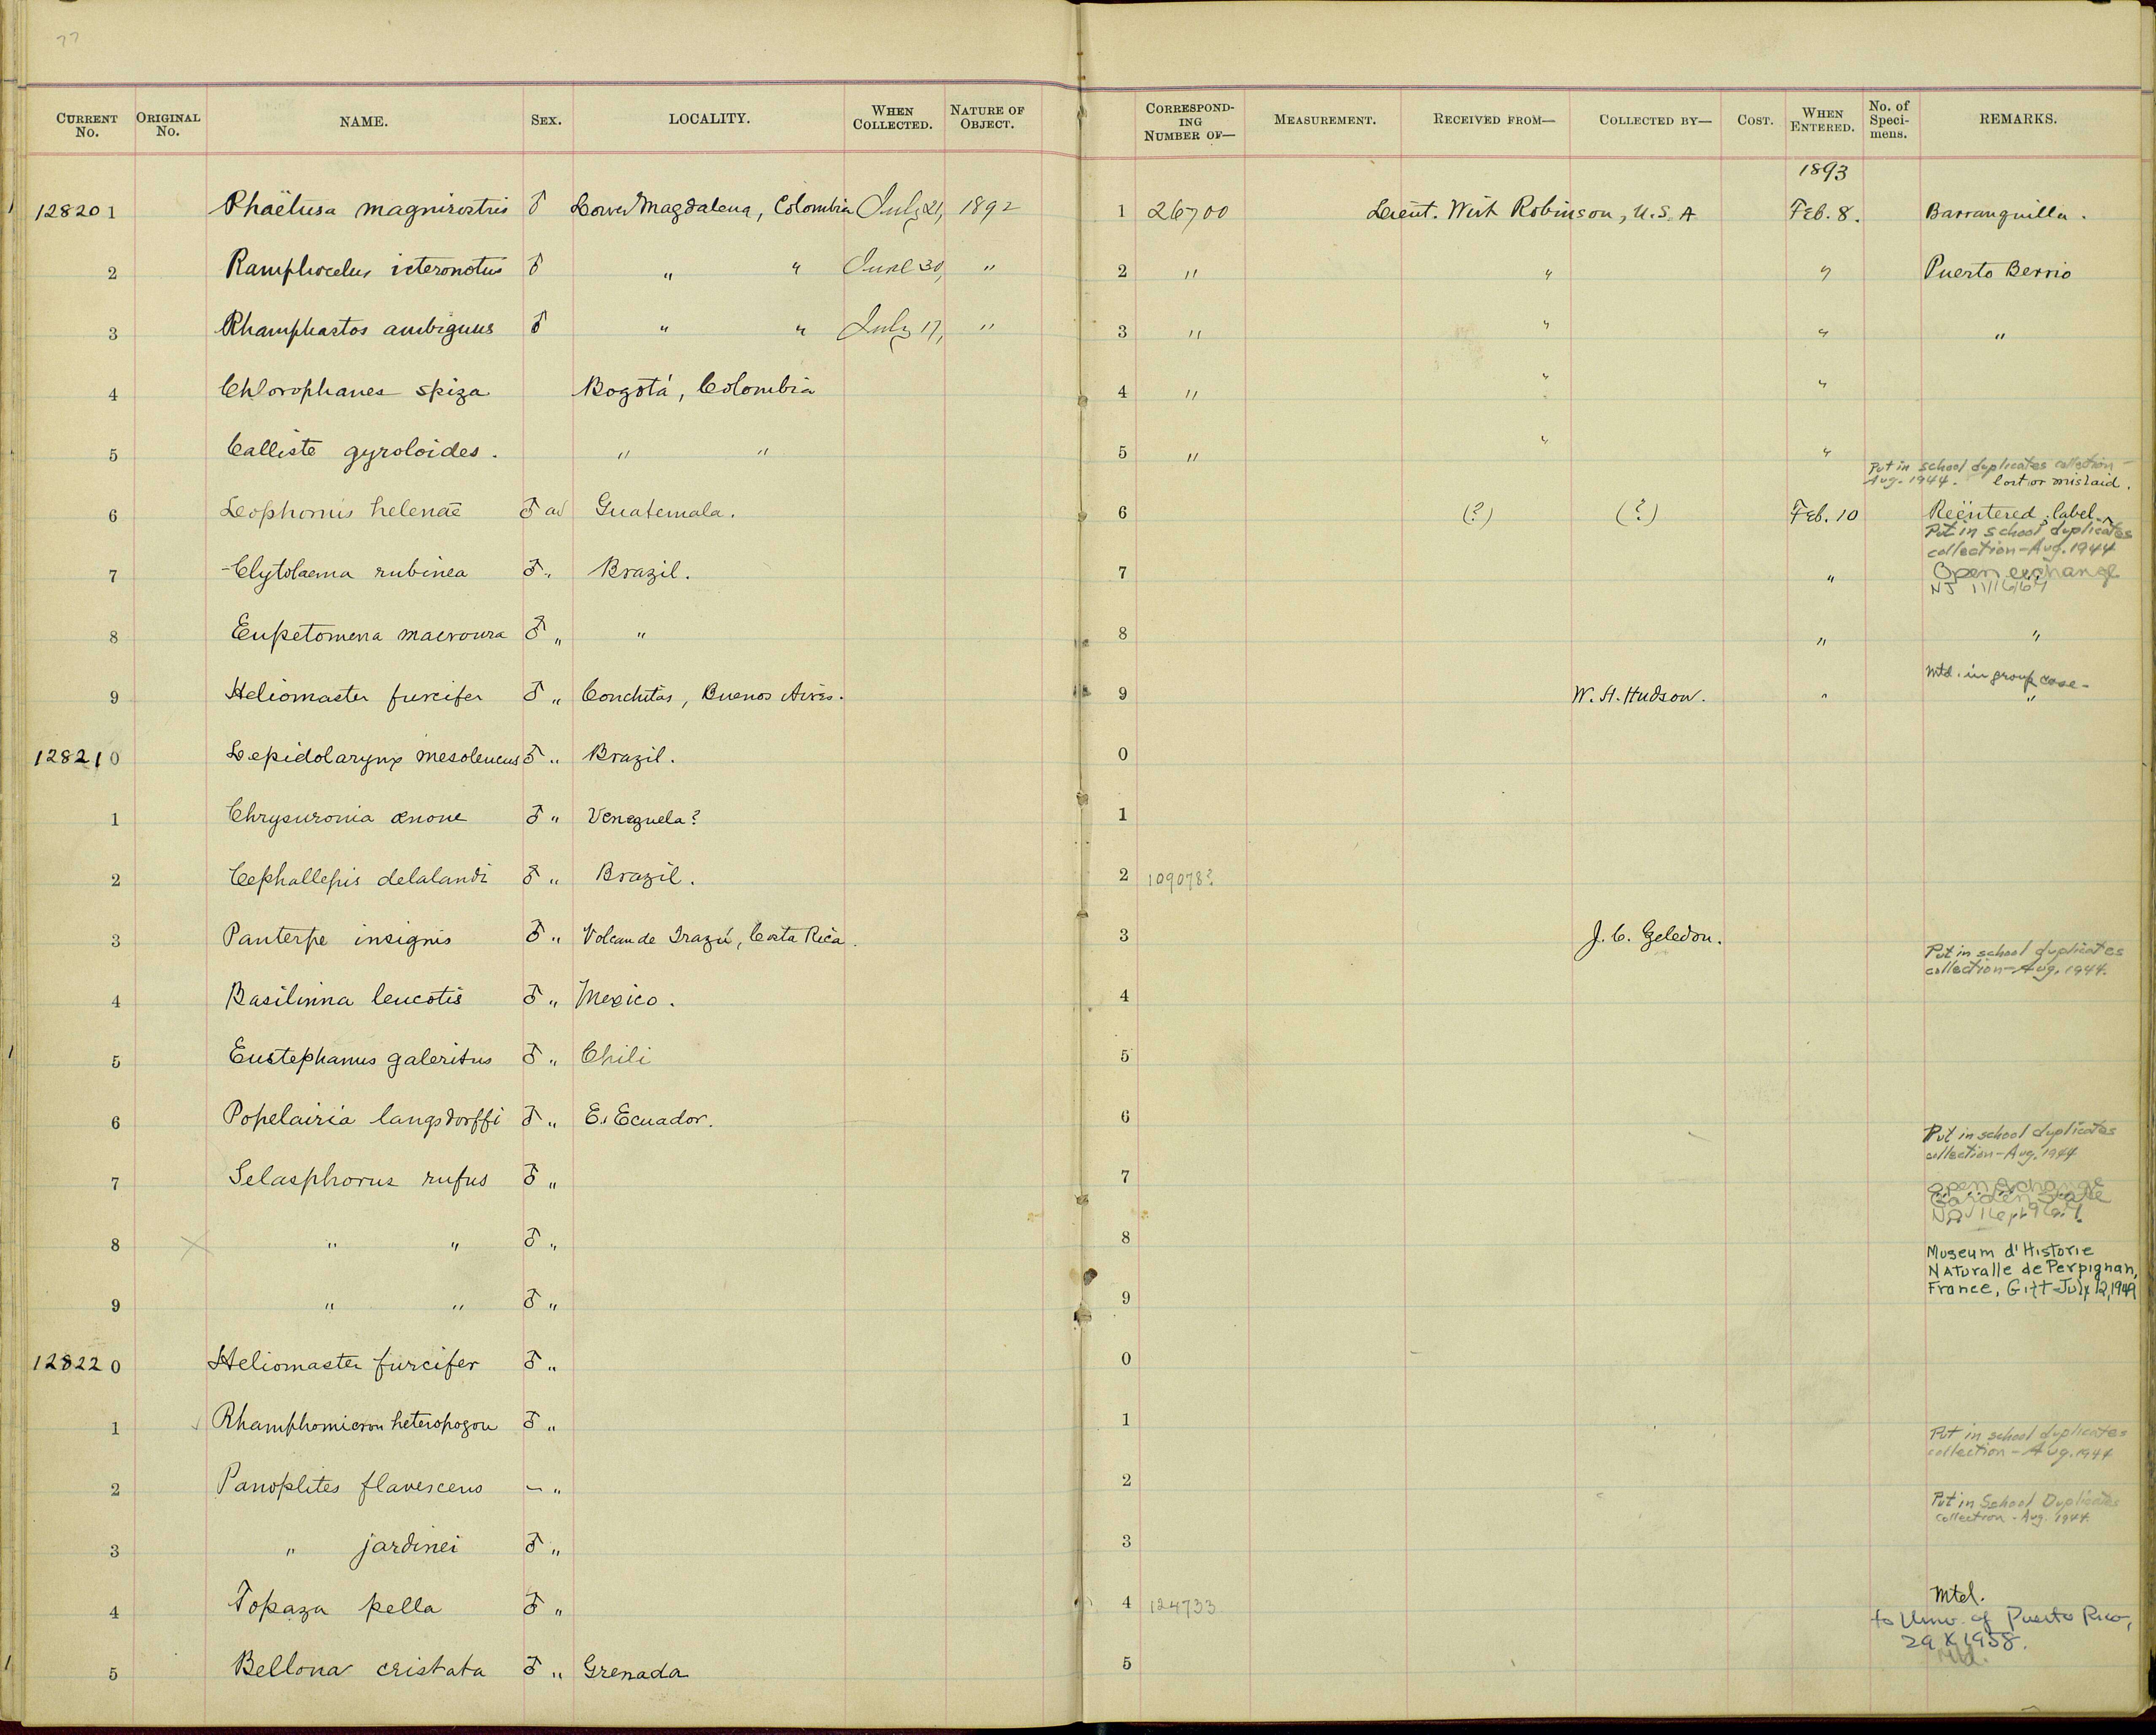 77
CURRENT No. ORIGINAL No. NAME. SEX. LOCALITY. WHEN COLLECTED. NATURE OF OBJECT. CORRESPONDING NUMBER OF— MEASUREMENT. RECEIVED FROM— COLLECTED BY— COST. WHEN ENTERED. No. of Specimens. REMARKS.
1893
128201 Phaëtusa magnirostris ♂ Lower Magdalena, Colombia July 21, 1892 1 26700 Lieut. Wirt Robinson, U.S.A Feb. 8. Barranquilla.
2 Ramphocelus icteronotus ♂ " " June 30, " 2 " " " Puerto Berrio
3 Rhamphastos ambiguus ♂ " " July 17, " 3 " " " "
4 Chlorophanes spiza Bogotá, Colombia 4 " " "
5 Calliste gyroloides. " " 5 " " "
Put in school duplicates collection -
Aug. 1944. lost or mislaid.
6 Leophornis helenae ♂ ad Guatemala. 6 (?) (?) Feb. 10 Reëntered, label
Put in school duplicates
collection - Aug. 1944
7 Clytolaema rubinea ♂ " Brazil. 7 " Open exchange
NJ
8 Eupetomena macroura ♂ " " 8 " "
Mtd. in group case -
9 Heliomaster furcifer ♂ " Conchitas, Buenos Aires. 9 W. H. Hudson. " "
128210 Lepidolarynx mesoleucus ♂ " Brazil. 0
1 Chrysuronia œnone ♂ " Venezuela? 1
2 Cephallepis delalandi ♂ " Brazil. 2 109078?
3 Panterpe insignis ♂ " Volcan de Irazú, Costa Rica. 3 J. C. Zeledon.
Put in school duplicates
collection - Aug. 1944.
4 Basilinna leucotis ♂ " Mexico. 4
5 Eustephanus galeritus ♂ " Chili 5
6 Popelairia langsdorffi ♂ " E. Ecuador. 6
Put in school duplicates
collection - Aug. 1944
7 Selasphorus rufus ♂ " 7
open exchange
Garden State
8 " " ♂ " 8 Museum d'Historie
Naturalle de Perpignan,
France, Gift - July 12, 1949
9 " " ♂ " 9
128220 Heliomaster furcifer ♂ " 0
1 Rhamphomicron heteropogon ♂ " 1
Put in school duplicates
collection - Aug. 1944
2 Panoplites flavescens — " 2
Put in School Duplicates
collection - Aug. 1944.
3 " jardinei ♂ " 3
4 Topaza pella ♂ " 4 124733 Mtd.
to Univ. of Puerto Rico,
29 X 1958.
Mtd.
5 Bellona cristata ♂ " Grenada 5